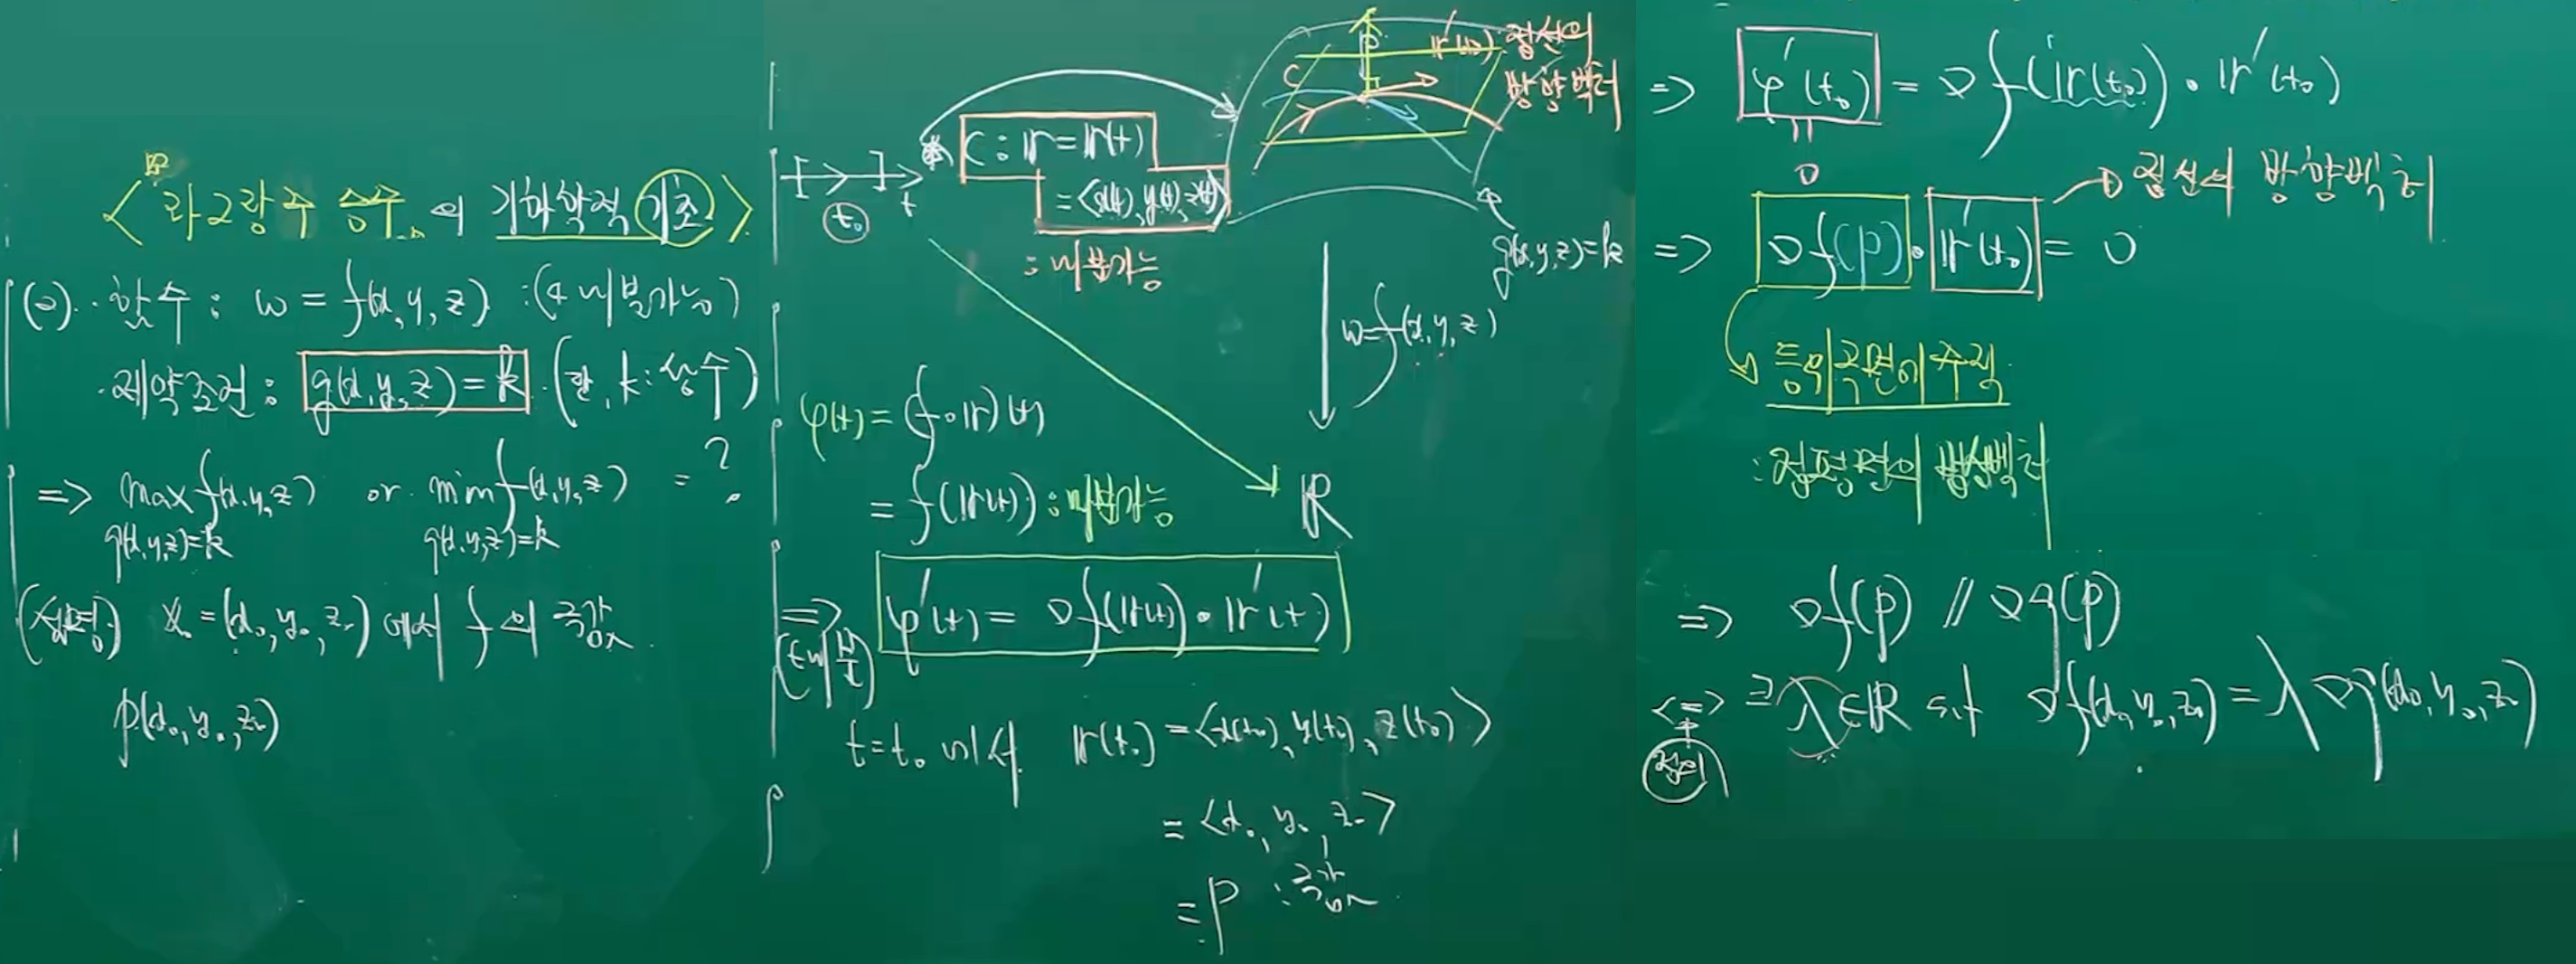 < 라그랑주 승수의 기하학적 기초 >
(2) · 함수 : w = f(x, y, z) : (미분가능)
· 제약조건 : g(x, y, z) = k. (단, k : 상수)
=> max f(x, y, z) or min f(x, y, z) = ?
g(x, y, z) = k g(x, y, z) = k
x₀ = (x₀, y₀, z₀) 에서 f의 극값
P(x₀, y₀, z₀)
t₀ t
C : r = r(t)
= <x(t), y(t), z(t)>
: 미분가능
C P r'(t₀) 접선의
방향벡터
g(x, y, z) = k
w = f(x, y, z)
φ(t) = (f∘r)(t)
= f(r(t)) : 미분가능
ℝ
=> φ'(t) = ∇f(r(t)) · r'(t)
t = t₀ 에서 r(t₀) = <x(t₀), y(t₀), z(t₀)>
= <x₀, y₀, z₀>
= P : 극값
=> φ'(t₀) = ∇f(r(t₀)) · r'(t₀)
0 → 접선의 방향벡터
=> ∇f(P) · r'(t₀) = 0
등위곡면에 수직
: 접평면의 법선벡터
=> ∇f(P) // ∇g(P)
<=> ∃ λ ∈ ℝ s.t ∇f(x₀, y₀, z₀) = λ ∇g(x₀, y₀, z₀)
정의